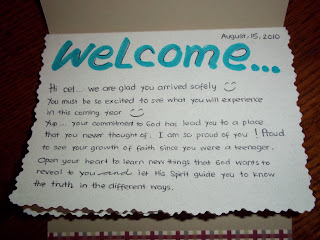 August, 15, 2010
Welcome...
Hi cel... we are glad you arrived safely
You must be so excited to see what you will experience
in this coming year
Yup... your commitment to God has lead you to a place
that you never thought of. I am so proud of you! Proud
to see your growth of faith since you were a teenager.
Open your heart to learn new things that God wants to
reveal to you and let His Spirit guide you to know
the truth in the different ways.